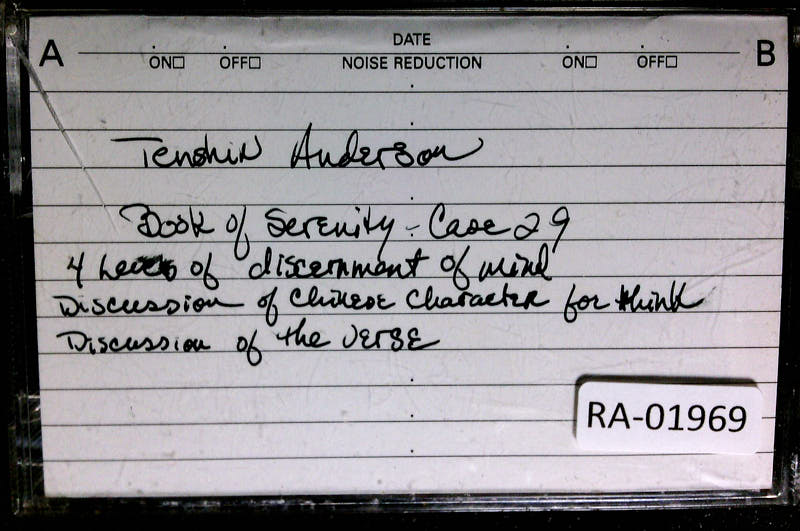 A DATE B
ON□ OFF□ NOISE REDUCTION ON□ OFF□
Tenshin Anderson
Book of Serenity - Case 29
4 Levels of discernment of mind
Discussion of Chinese Character for think
Discussion of the verse
RA-01969